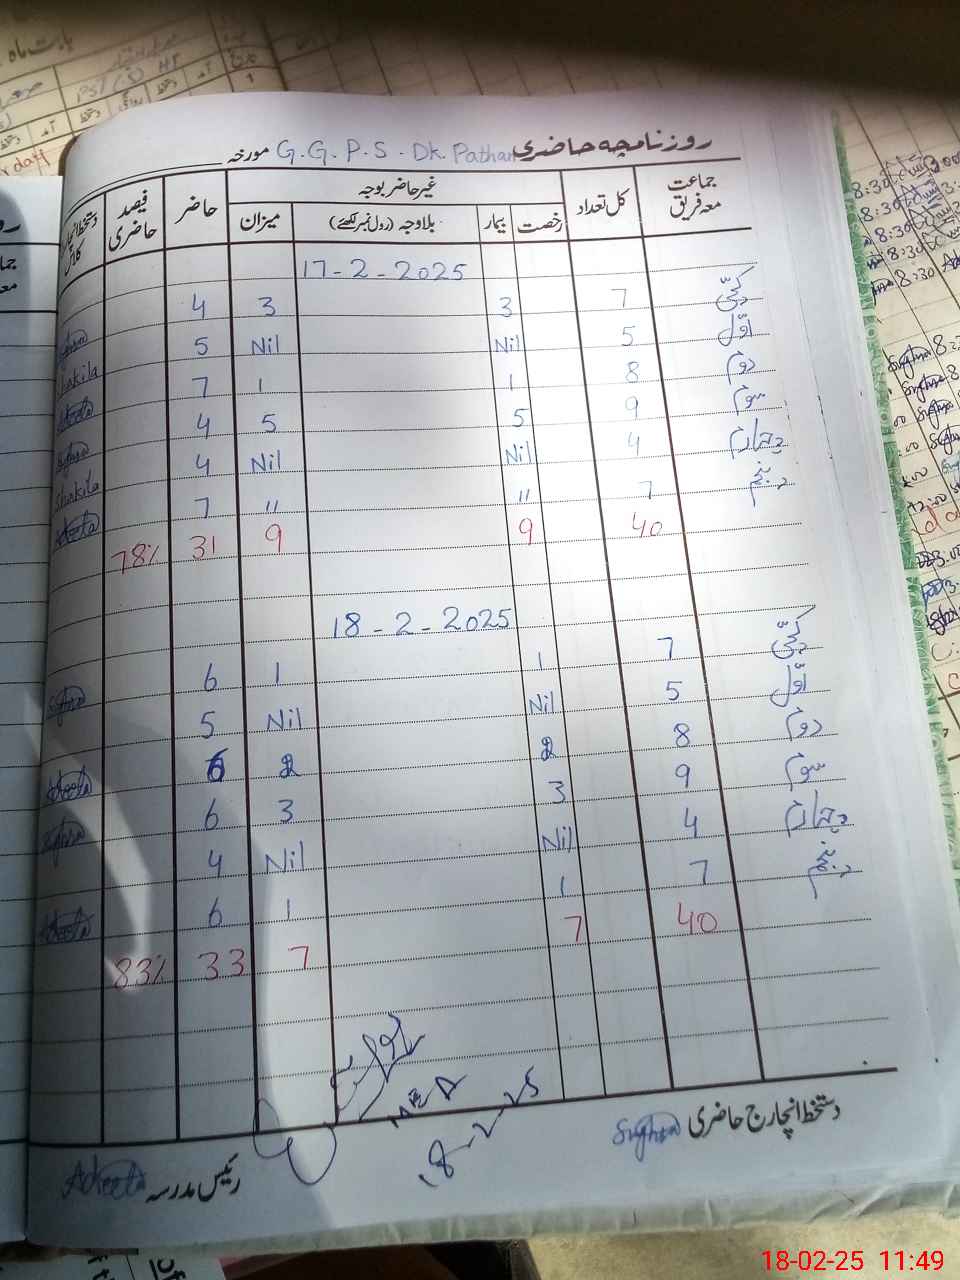 روزنامچہ حاضری G.G.P.S. Dk. Pathan مورخہ
جماعت معہ فریق کل تعداد غیر حاضر بوجہ حاضر فیصد حاضری دستخط انچارج کلاس
رخصت بیمار بلاوجہ (رول نمبر لکھئے) میزان
17-2-2025
کچی 7 3 3 4
اول 5 Nil Nil 5
دوم 8 1 1 7 Shakila
سوم 9 5 5 4 Adeeta
چہارم 4 Nil Nil 4
پنجم 7 " " 7 Shakila
40 9 9 31 78% Adeeta
18-2-2025
کچی 7 1 1 6
اول 5 Nil Nil 5
دوم 8 2 2 6 Adeeta
سوم 9 3 3 6
چہارم 4 Nil Nil 4
پنجم 7 1 1 6 Adeeta
40 7 7 33 83%
18-2-25
دستخط انچارج حاضری Sughra
رئیس مدرسہ Adeeta
18-02-25 11:49